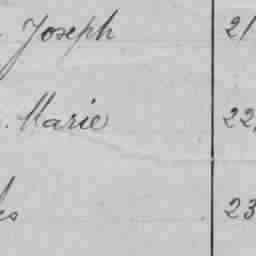 Joseph 21
Marie 22
23